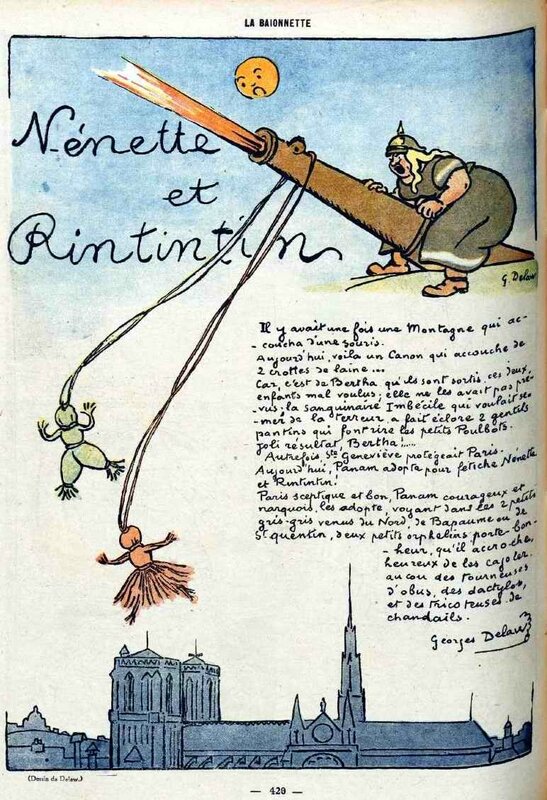 LA BAIONNETTE
Nénette
et
Rintintin
G. Delaw
Il y avait une fois une Montagne qui ac-
-coucha d'une souris.
Aujourd'hui, voilà un Canon qui accouche de
2 crottes de laine ...
Car, c'est de Bertha qu'ils sont sortis, ces deux,
enfants mal voulus; elle ne les avait pas pré-
vus; la sanguinaire Imbécile qui voulait se-
mer de la terreur, a fait éclore 2 gentils
pantins qui font rire les petits Poulbots.
Joli résultat, Bertha!....
Autrefois, Ste Geneviève protégeait Paris.
Aujourd'hui, Panam adopte pour fétiche Nénette
et Rintintin!
Paris sceptique et bon, Panam courageux et
narquois, les adopte, voyant dans les 2 petits
gris-gris venus du Nord, de Bapaume ou de
St Quentin, deux petits orphelins porte-bon-
-heur, qu'il accroche,
heureux de les cajoler
au cou des tourneuses
d'obus, des dactylos,
et des tricoteuses de
chandails.
Georges Delaw
(Dessin de Delaw.)
— 429 —